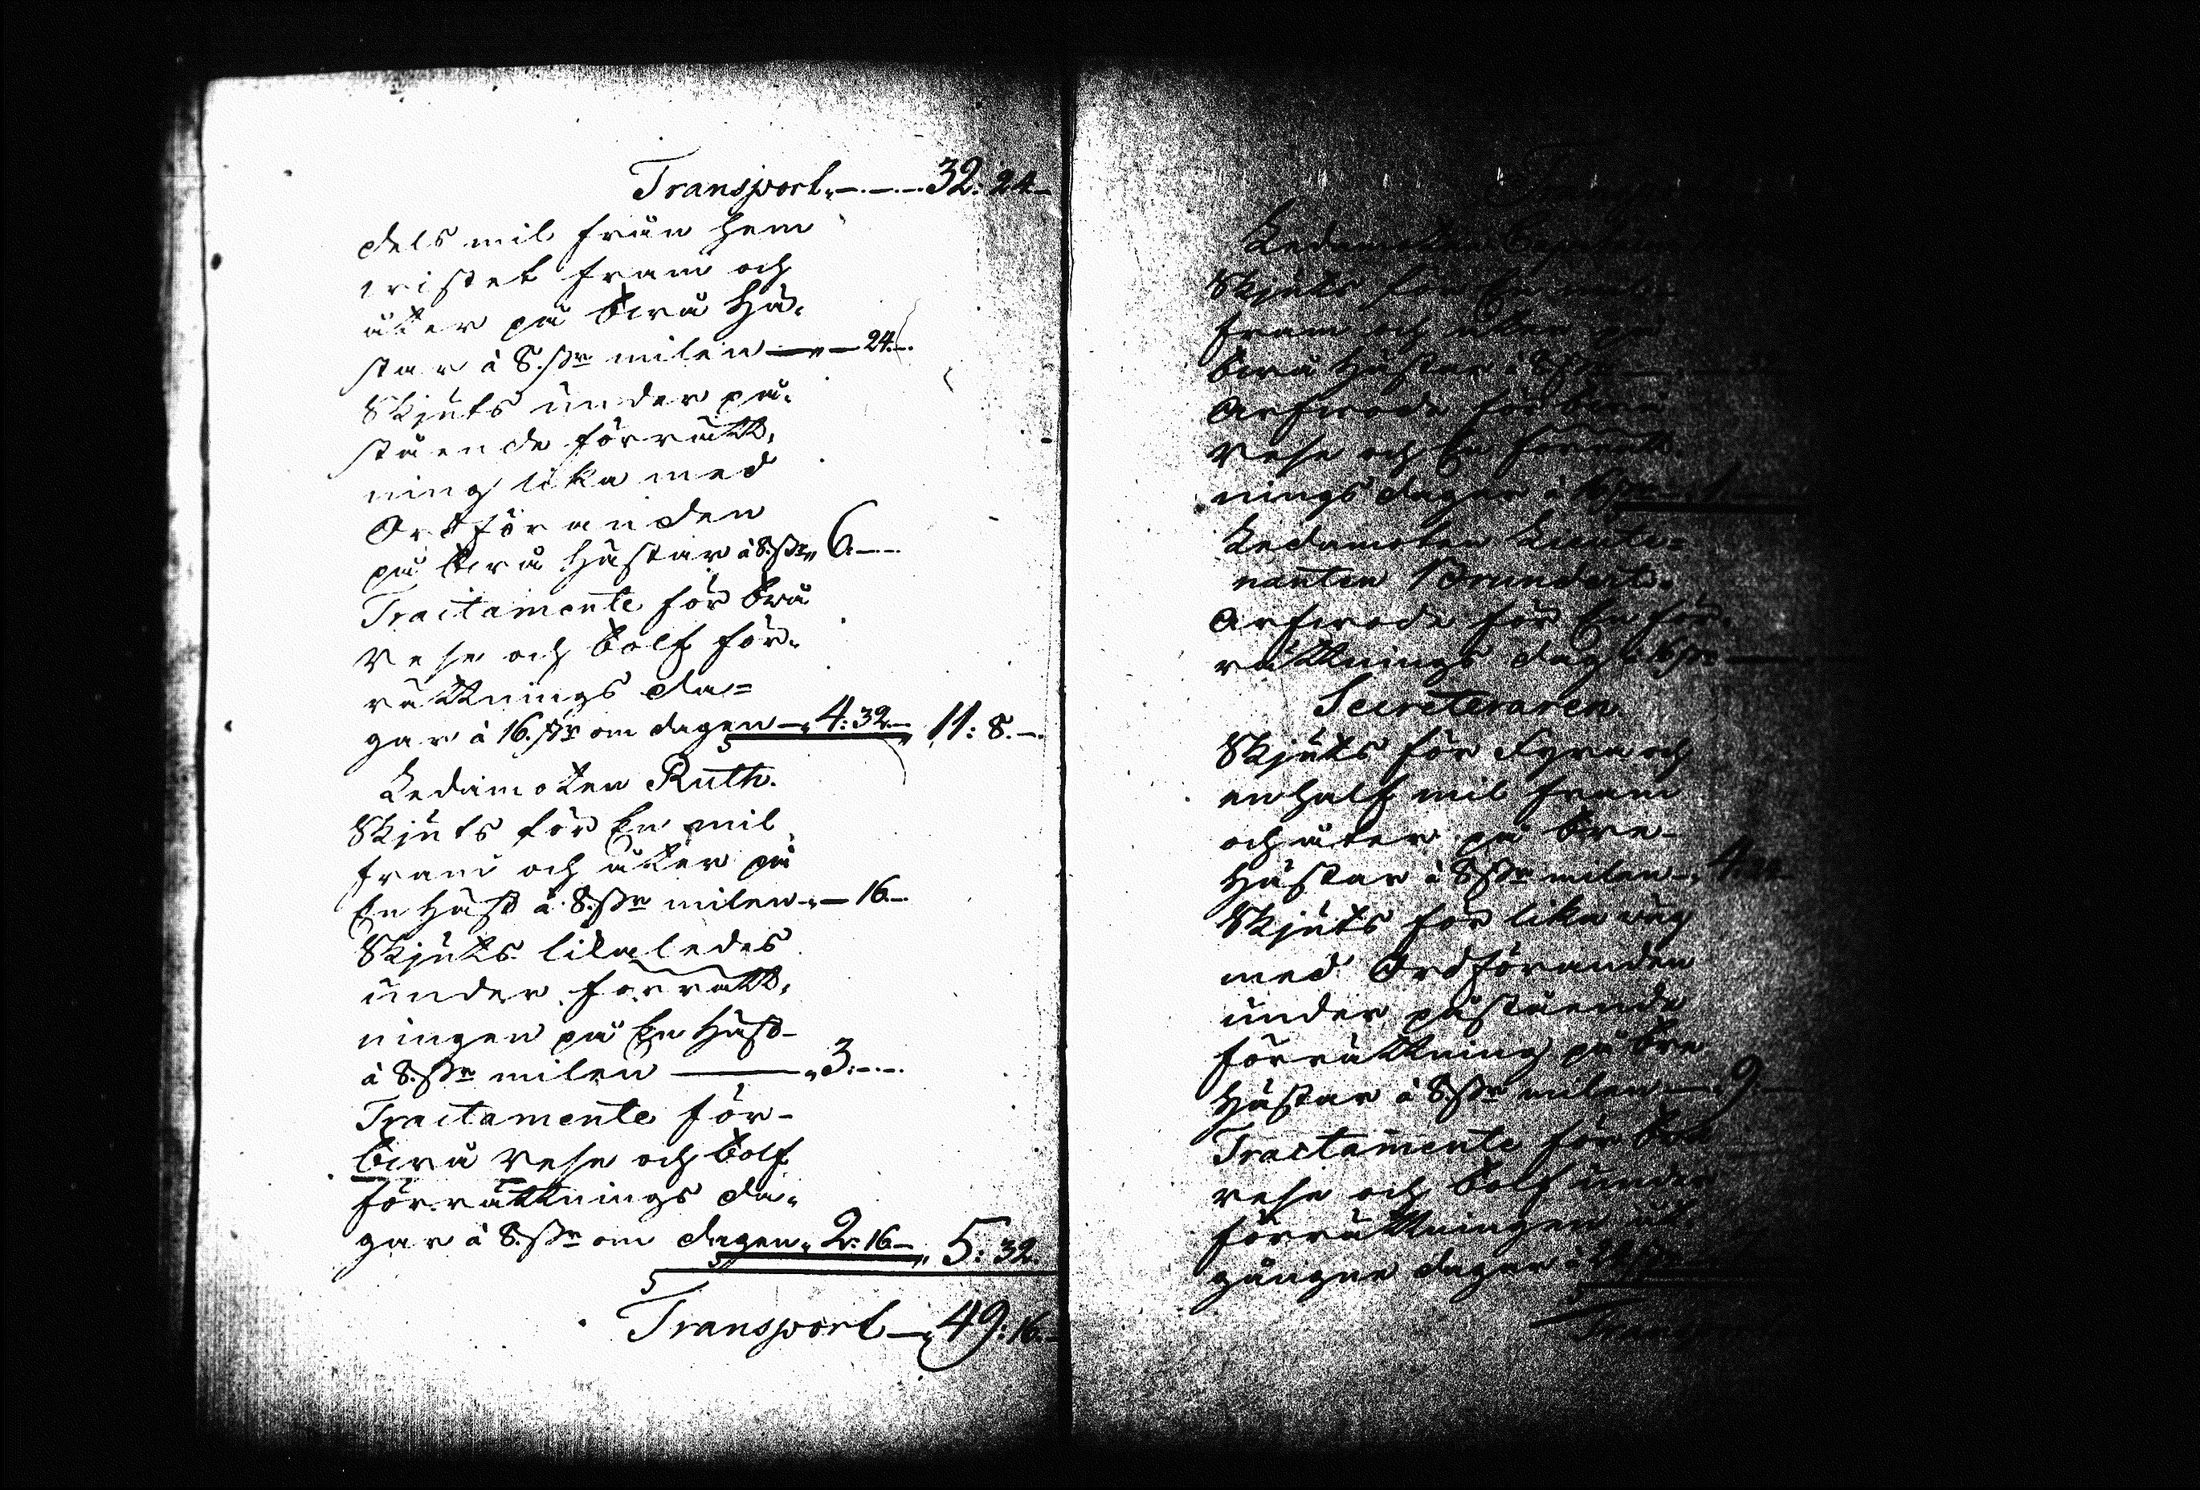 Transport 32: 24
dels mil från hem
wistet fram och
åter på twå Hä-
star à 8. ssr milen 24.
Skjuts under på-
stående förrätt-
ning lika med
Ordföranden
på twå Hästar à 8. ssr 6.
Tractamente för två
rese och tolf för-
rättnings da=
gar à 16. ssr om dagen 4: 32. 11: 8.
Ledamoten Ruth.
Skjuts för En mil
fram och åter på
En Häst à 8. ssr milen 16.
Skjuts likaledes
under förrätt-
ningen på En Häst
à 8. ssr milen 3.
Tractamente för
twå rese och tolf
förrättnings da-
gar à 8. ssr om dagen 2: 16. 5: 32.
Transport 49: 16.
Ledamoten
Skjuts för En mil
fram och åter på
twå Hästar à 8 ssr
Arfwode för twå
rese och En förrätt-
nings dagar à 16 ssr 1.
Ledamoten Lieute-
nanten
Arfwode för En för-
rättnings dag 16 ssr
Secreteraren.
Skjuts för Fyra och
en half mil fram
och åter på tre
Hästar à 8 ssr milen 4.
Skjuts för lika wäg
med Ordföranden
under påstående
förrättning på tre
Hästar à 8 ssr milen 9.
Tractamente för två
rese och tolf under
förrättningen åt-
gångne dagar à
Transport